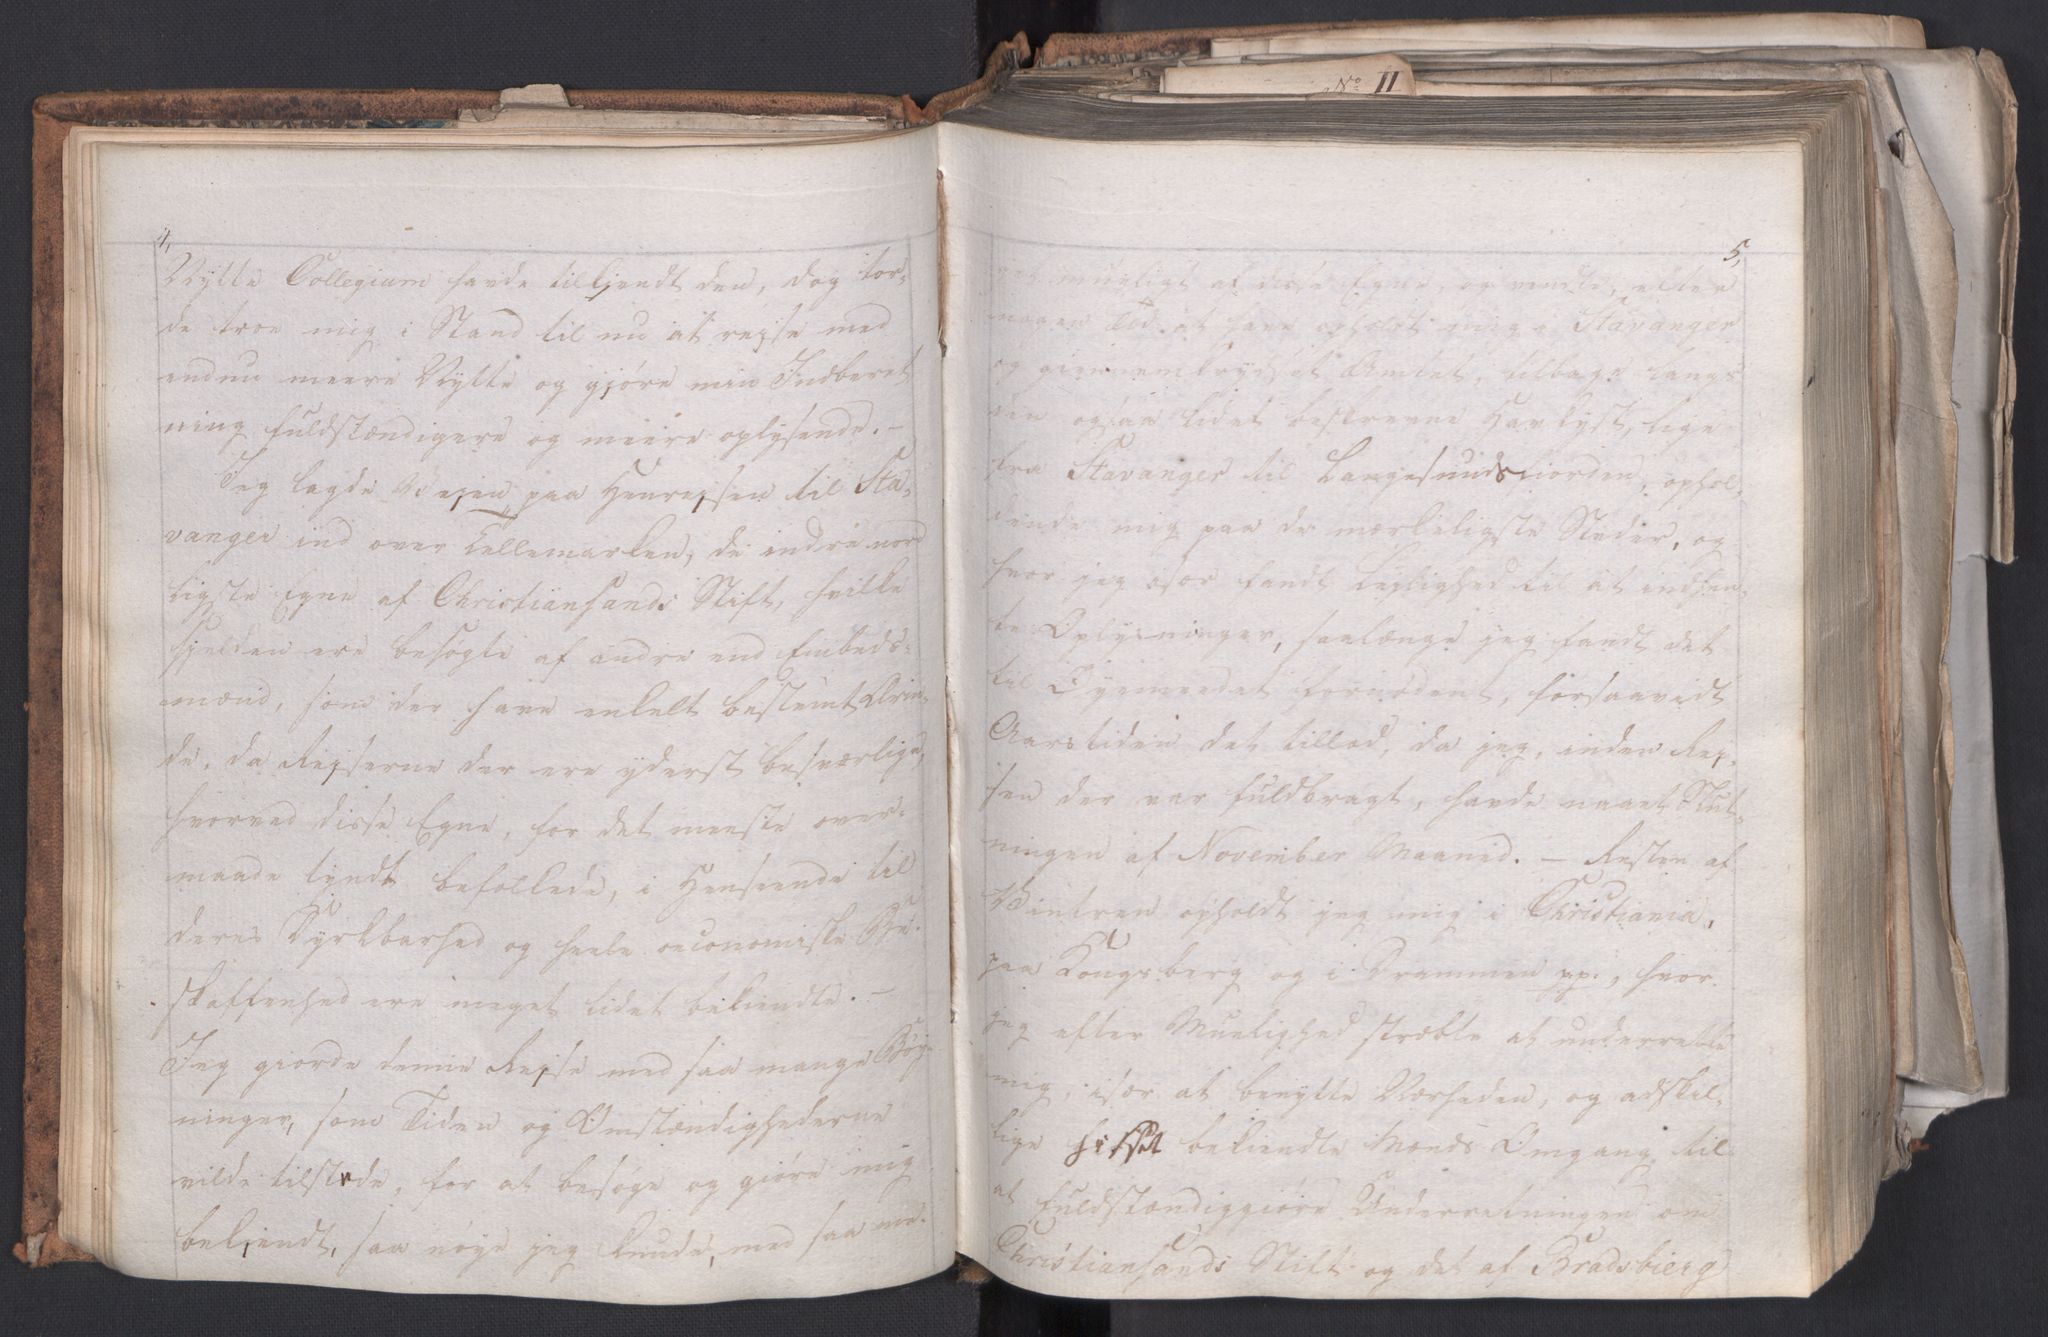 No. II
4,
Nytte Collegium havde tilkjendt den, dog tor-
de troe mig i Stand til nu at rejse med
endnu meere Nytte og gjöre min Indberet
ning fuldstændigere og meere oplysende. –
Jeg lagde Vejen paa Henrejsen til Sta-
vanger ind over Tellemarken, de indre nord
ligste Egne af Christiansands Stift, hvilke
sjelden ere besögte af andre end Embeds-
mænd, som der have enkelt bestemt Ærin-
de, da Rejserne der ere yderst besværlige,
hvorved disse Egne, for det meeste over-
maade tyndt befolkede, i Henseende til
deres Dyrkbarhed og heele oeconomiske Be-
skaffenhed ere meget lidet bekiendte. –
Jeg giorde denne Rejse med saa mange Böy-
ninger, som Tiden og Omstændighederne
vilde tilstede, for at besöge og giöre mig
bekjendt, saa nöye jeg kunde, med saa me-
5,
get mueligt af disse Egne, og reiste, efter
nogen Tid at have opholdt mig i Stavanger
og giennemkrydset Amtet, tilbage langs
den ogsaa lidet beskrevne Havkyst, lige
fra Stavanger til Langesundsfiorden, ophol-
dende mig paa de mærkeligste Steder, og
hvor jeg især fandt Lejlighed til at indhen-
te Oplysninger, saalænge jeg fandt det
til Öyemeedet fornödent, forsaavidt
Aarstiden det tillod, da jeg, inden Rej-
sen der var fuldbragt, havde naaet Slut-
ningen af November Maaned. – Resten af
Vintren opholdt jeg mig i Christiania,
paa Kongsberg og i Drammen pp., hvor
jeg efter Muelighed stræbte at underrette
mig, især at benytte Nærheden, og adskil-
lige hisset bekiendte Mænds Omgang til
at fuldstændiggiöre Underretningen om
Christiansands Stift og det af Bradsbierg